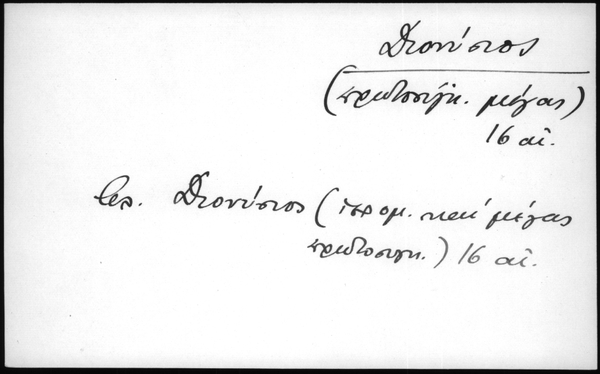 Διονύσιος
(πρωτοσύγκ. μέγας)
16 αἰ.
βλ. Διονύσιος (ἱερομ. καί μέγας
πρωτοσυγκ.) 16 αἰ.